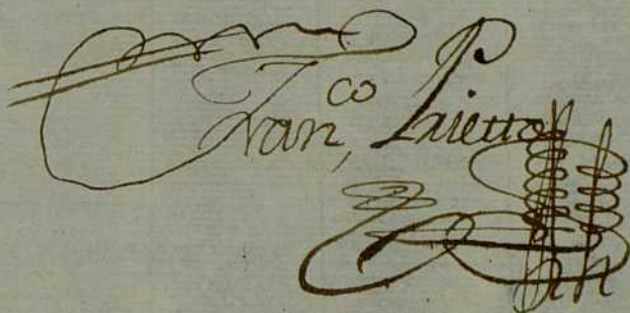 Fran,co Prietto